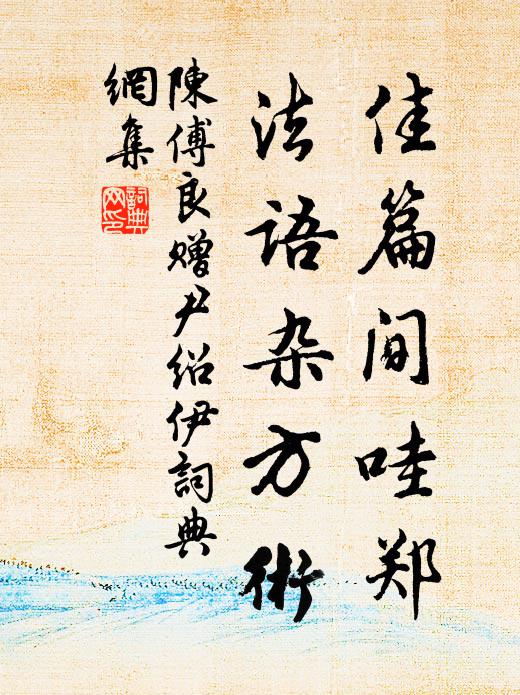 佳篇间哇郑
法语杂方術
陳傅良赠尹绍伊詞典
網集
詞典
网印